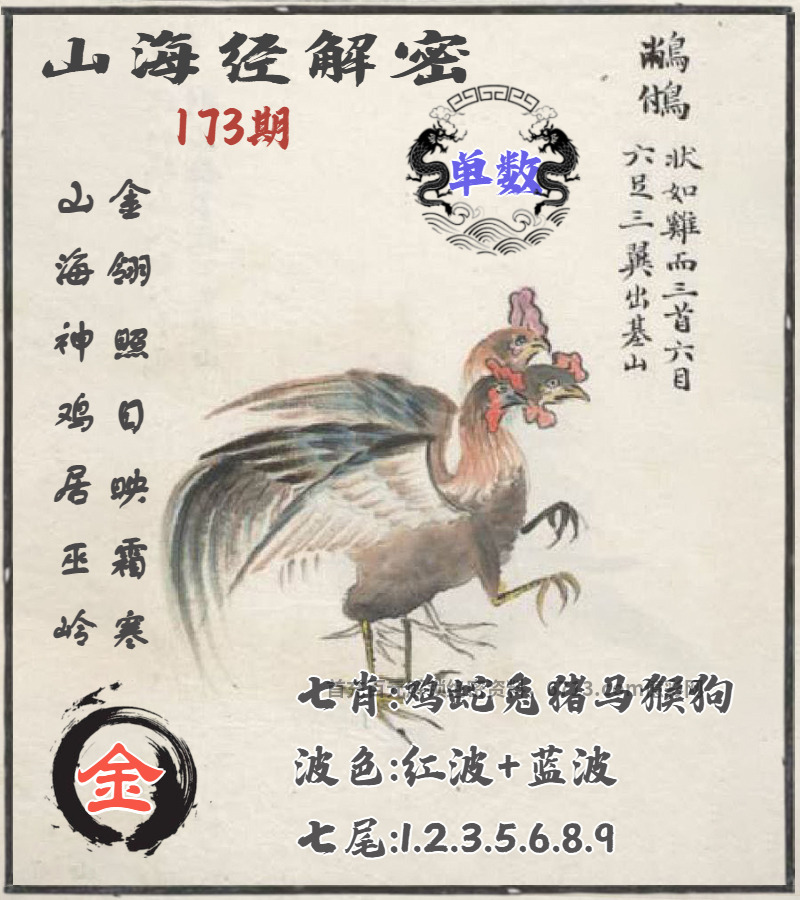 山海经解密
173期
单数
鵸鵌
状如雞而三首六目
六足三翼出基山
金翎照日映霜寒
山海神鸡居巫岭
七肖:鸡蛇兔猪马猴狗
波色:红波+蓝波
七尾:1.2.3.5.6.8.9
金